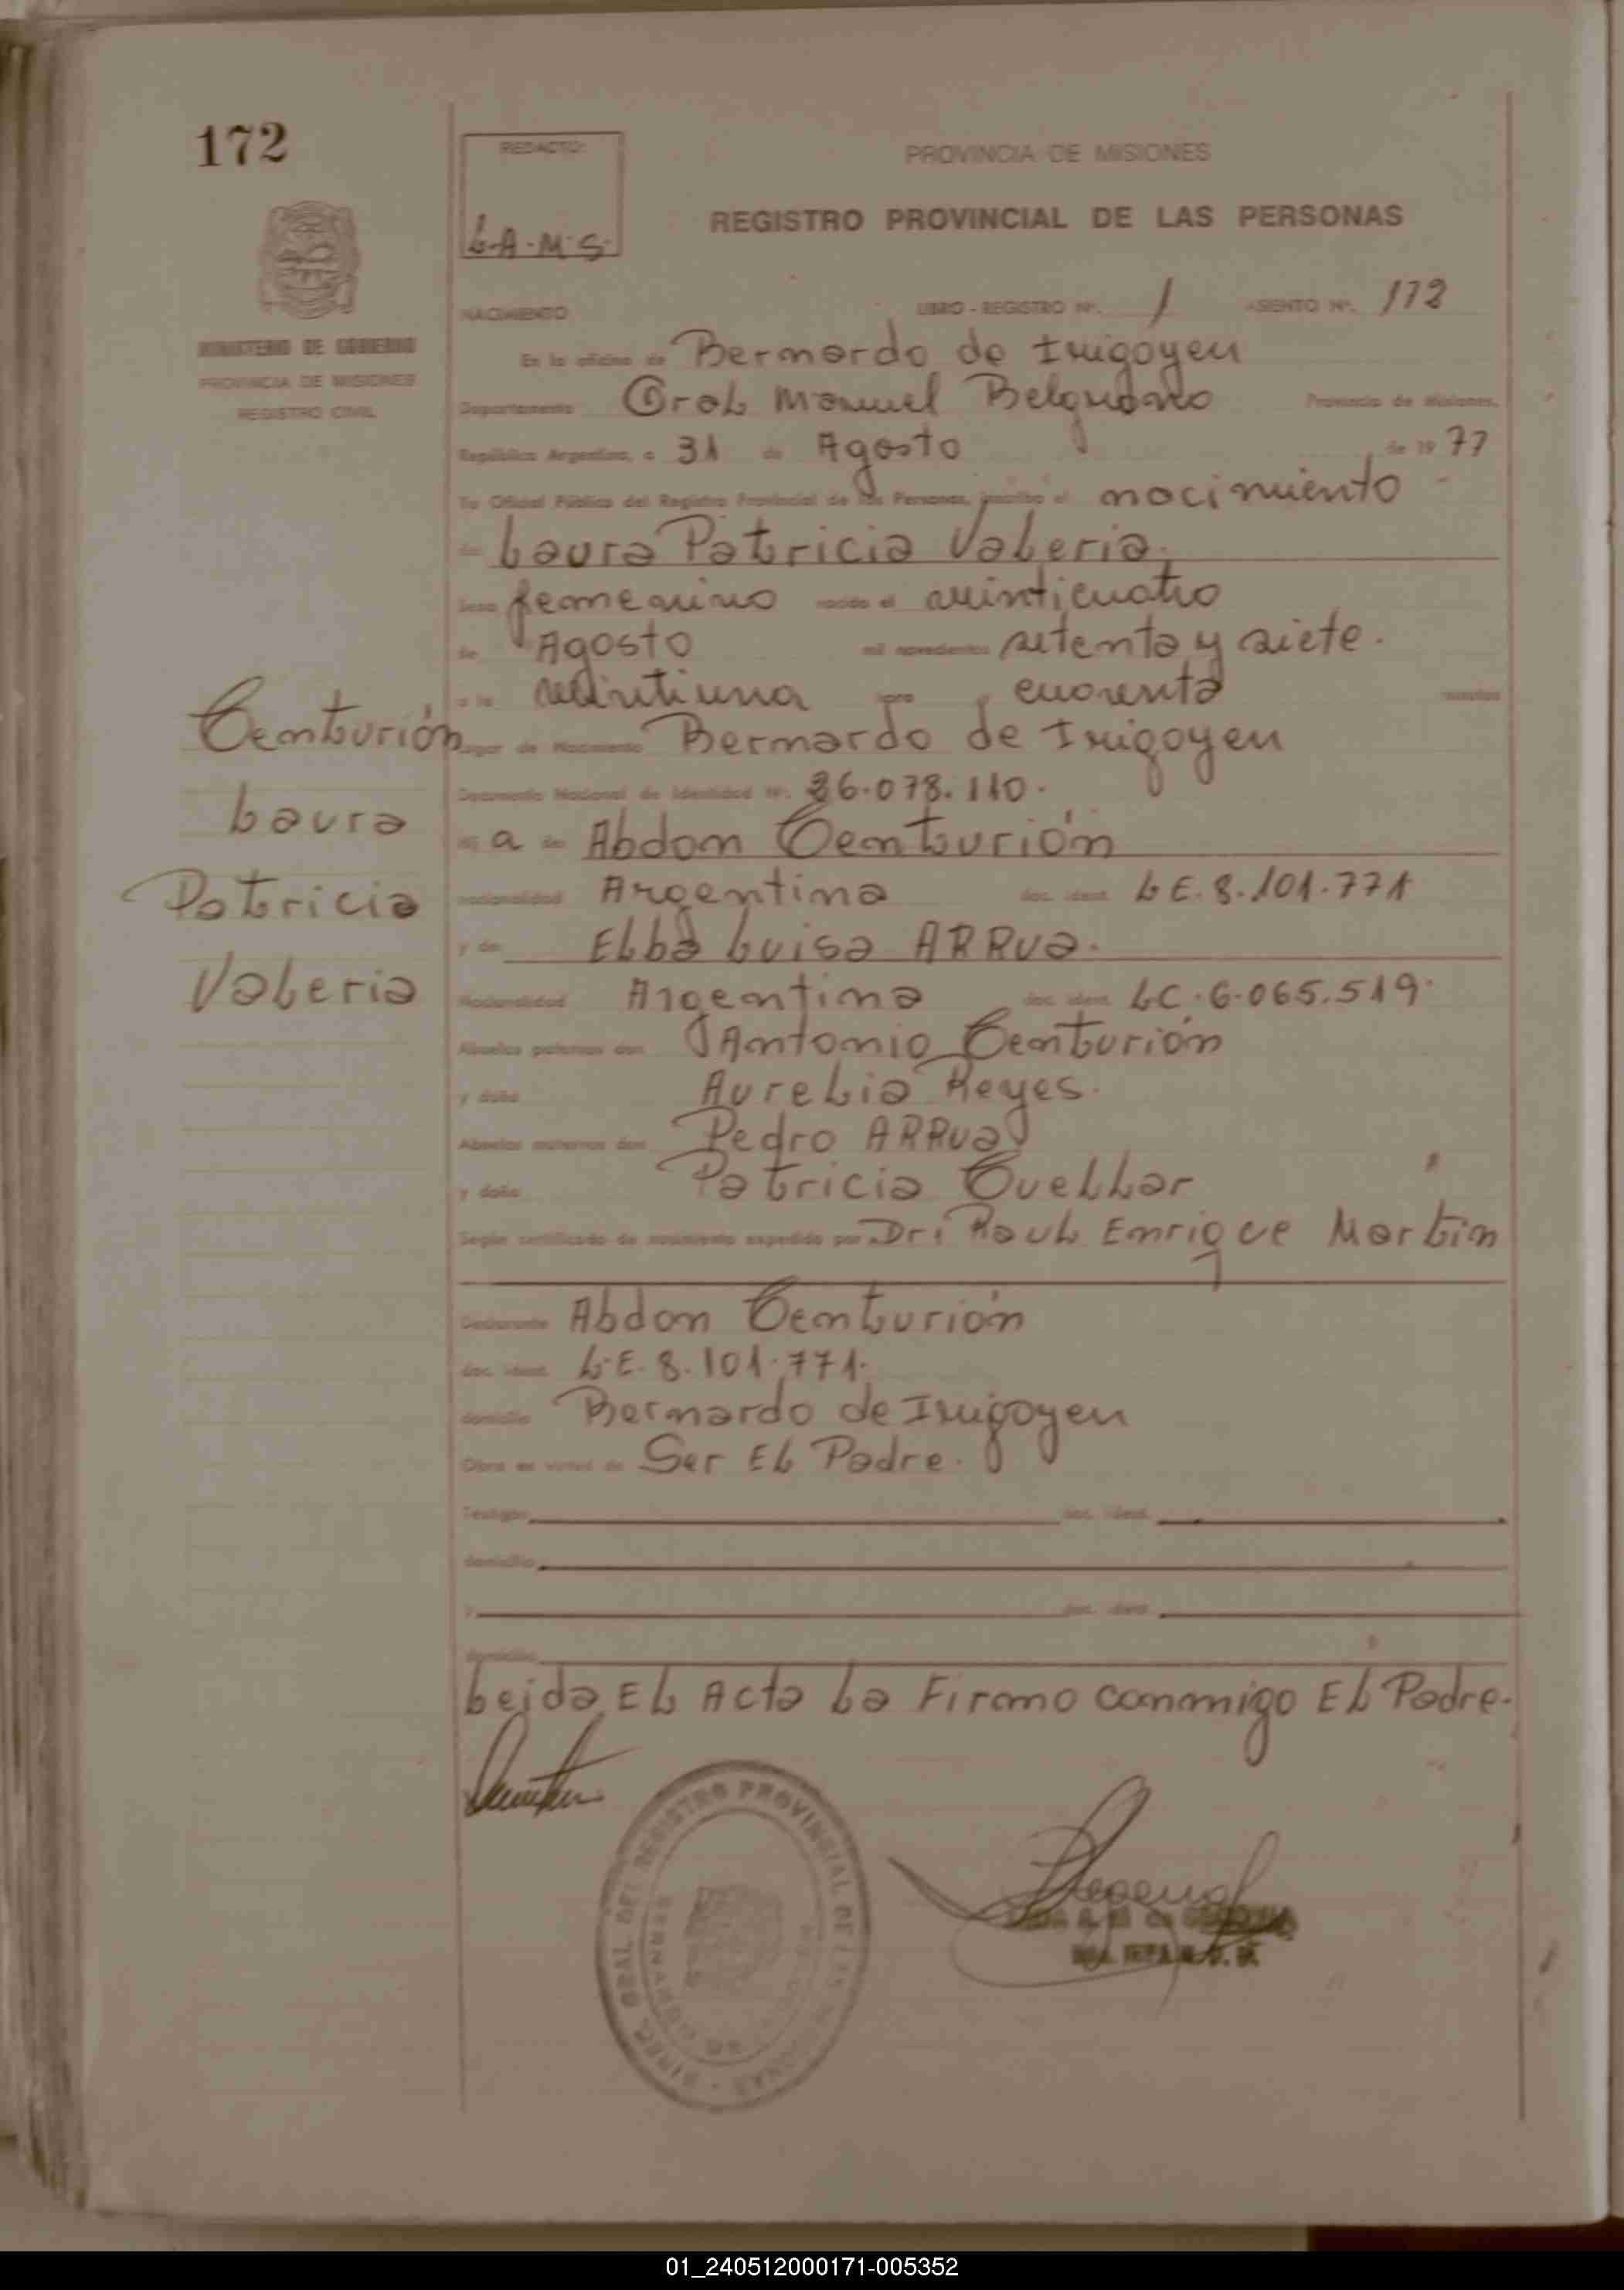 172
REDACTO:
L.A.M.S.
PROVINCIA DE MISIONES
REGISTRO PROVINCIAL DE LAS PERSONAS
MINISTERIO DE GOBIERNO
PROVINCIA DE MISIONES
REGISTRO CIVIL
NACIMIENTO LIBRO - REGISTRO Nº. 1 ASIENTO Nº. 172
En la oficina de Bernardo de Irigoyen
Departamento Gral Manuel Belgrano Provincia de Misiones,
República Argentina, a 31 de Agosto de 19 77
Yo Oficial Público del Registro Provincial de las Personas, inscribo el nacimiento
de Laura Patricia Valeria.
Sexo femenino nacido el veinticuatro
de Agosto mil novecientos setenta y siete.
a la veintiuna hora y cuarenta minutos
Lugar de Nacimiento Bernardo de Irigoyen
Documento Nacional de Identidad Nº. 26.078.110.
hij a de Abdon Centurión
nacionalidad Argentina doc. ident. LE. 8.101.771
y de Elba Luisa ARRua.
Nacionalidad Argentina doc. ident. LC. 6.065.519.
Abuelos paternos don Antonio Centurión
y doña Aurelia Reyes.
Abuelos maternos don Pedro ARRua
y doña Patricia Cuellar
Según certificado de nacimiento expedido por Dr: Raul Enrique Martin
Declarante Abdon Centurión
doc. ident. L.E. 8.101.771.
domicilio Bernardo de Irigoyen
Obra en virtud de Ser El Padre.
Testigos doc. ident.
domicilio
y doc. ident.
domicilio
Leida El Acta La Firma conmigo El Padre.
Centurión
Laura
Patricia
Valeria
DIREC. GRAL. DEL REGISTRO PROVINCIAL DE LAS PERSONAS
01_240512000171-005352